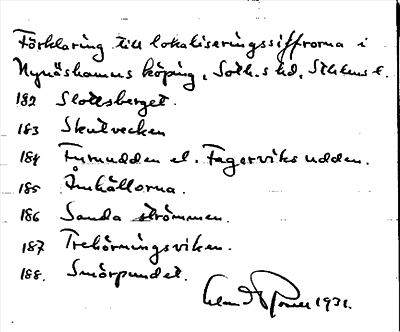 Förklaring till lokaliseringssiffrorna i
Nynäshamns köping, Soth.s hd, Sthlms l.
182 Slottsberget.
183 Skutvecken
184 Furuudden el. Fagerviks udden.
185 Åmkällorna.
186 Sanda strömmen.
187 Trehörningsviken.
188. Smörpundet.
1931.